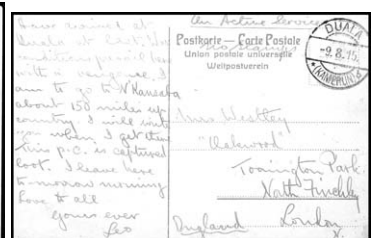 have arrived at
Duala at last. The
conditions
with a vengeance. I
am to go to N'Kansaba
about 150 miles up
country I will write
you when I get there
this p.c. is captured
loot. I leave here
to-morrow morning
Love to all
yours ever
Leo
On Active Service
Postkarte — Carte Postale
no stamps
Union postale universelle
Weltpostverein
DUALA
-9.8.15.
(KAMERUN)
Mrs Westley
"Oakwood"
Torrington Park
North Finchley
London
England